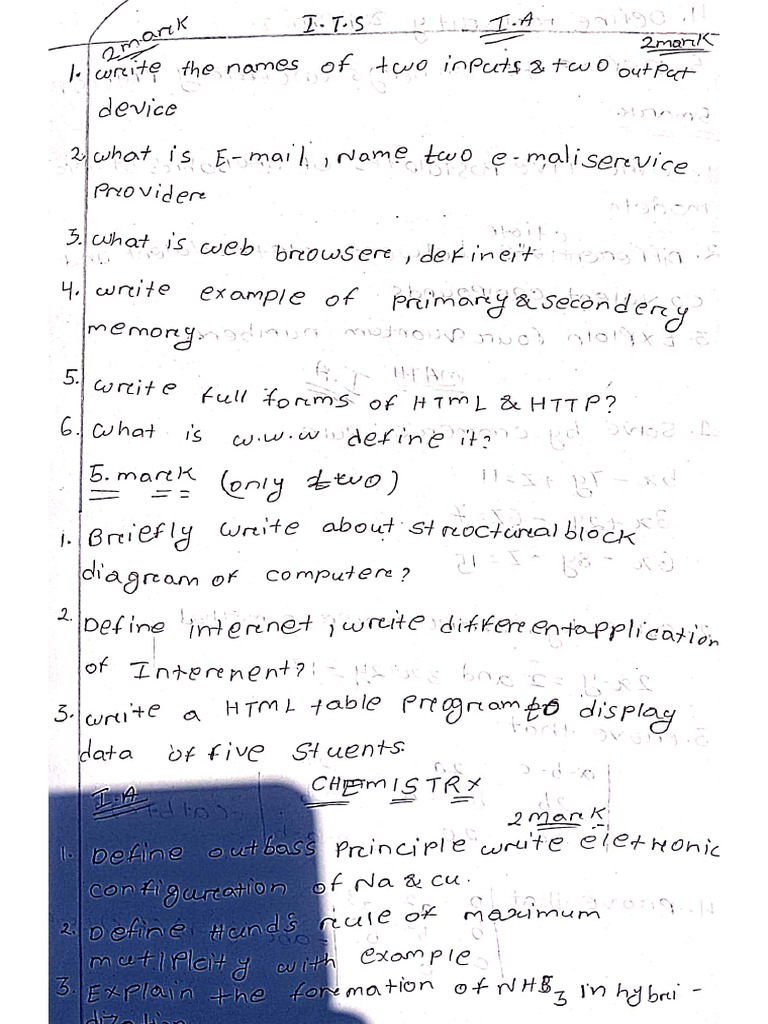 I.T.S I.A
2mark 2mark
1. write the names of two inputs & two output
device
2 what is E-mail, Name two e-maliservice
Provider
3. what is web browser, defineit
4. write example of primary & secondery
memory.
5. write full forms of HTML & HTTP?
6. what is w.w.w define it?
5. mark (only two)
1. Briefly write about structuralblock
diagram of computer?
2. Define internet, write differentapplication
of Interenent?
3. write a HTML table program to display
data of five stuents.
I.A CHEMISTRY
2 mark
1. Define outbass principle write eletronic
configuration of Na & cu.
2. Define Hunds rule of maximum
mutiplcity with example
3. Explain the formation of NH3 in hybri-